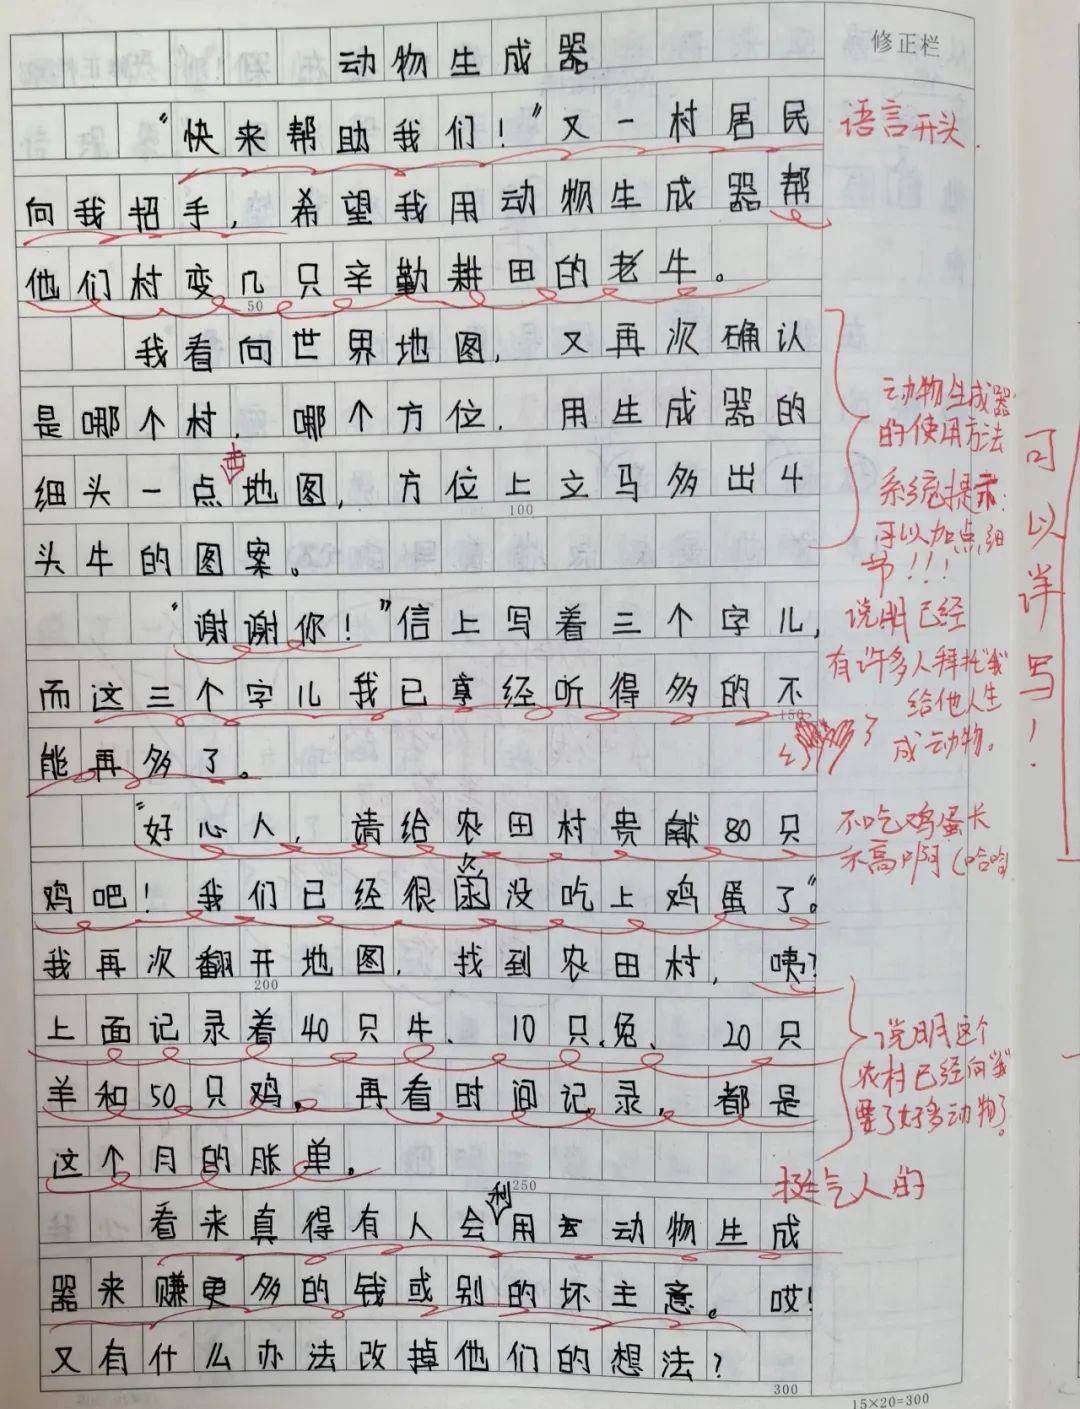 动物生成器
修正栏
"快来帮助我们!"又一村居民
语言开头.
向我招手,希望我用动物生成器帮
他们村变几只辛勤耕田的老牛。
50
我看向世界地图,又再次确认
是哪个村,哪个方位,用生成器的
细头一点击地图,方位上立马多出4
100
头牛的图案。
动物生成器
的使用方法
系统提示:
可以加点细
节!!!
可以详写!
"谢谢你!"信上写着三个字儿,
而这三个字儿我已享经听得多的不
150
能再多了。
说明已经
有许多人拜托"我"
给他人生
成动物。
"好心人,请给农田村贵献80只
鸡吧!我们已经很久没吃上鸡蛋了"。
不吃鸡蛋长
不高啊(哈哈)
我再次翻开地图,找到农田村,咦?
200
上面记录着40只牛、10只兔、20只
羊和50只鸡,再看时间记录,都是
这个月的账单。
250
说明这个
农村已经向"我"
要了好多动物了。
挺气人的
看来真得有人会利用动物生成
器来赚更多的钱或别的坏主意。哎!
又有什么办法改掉他们的想法?
300
15×20=300